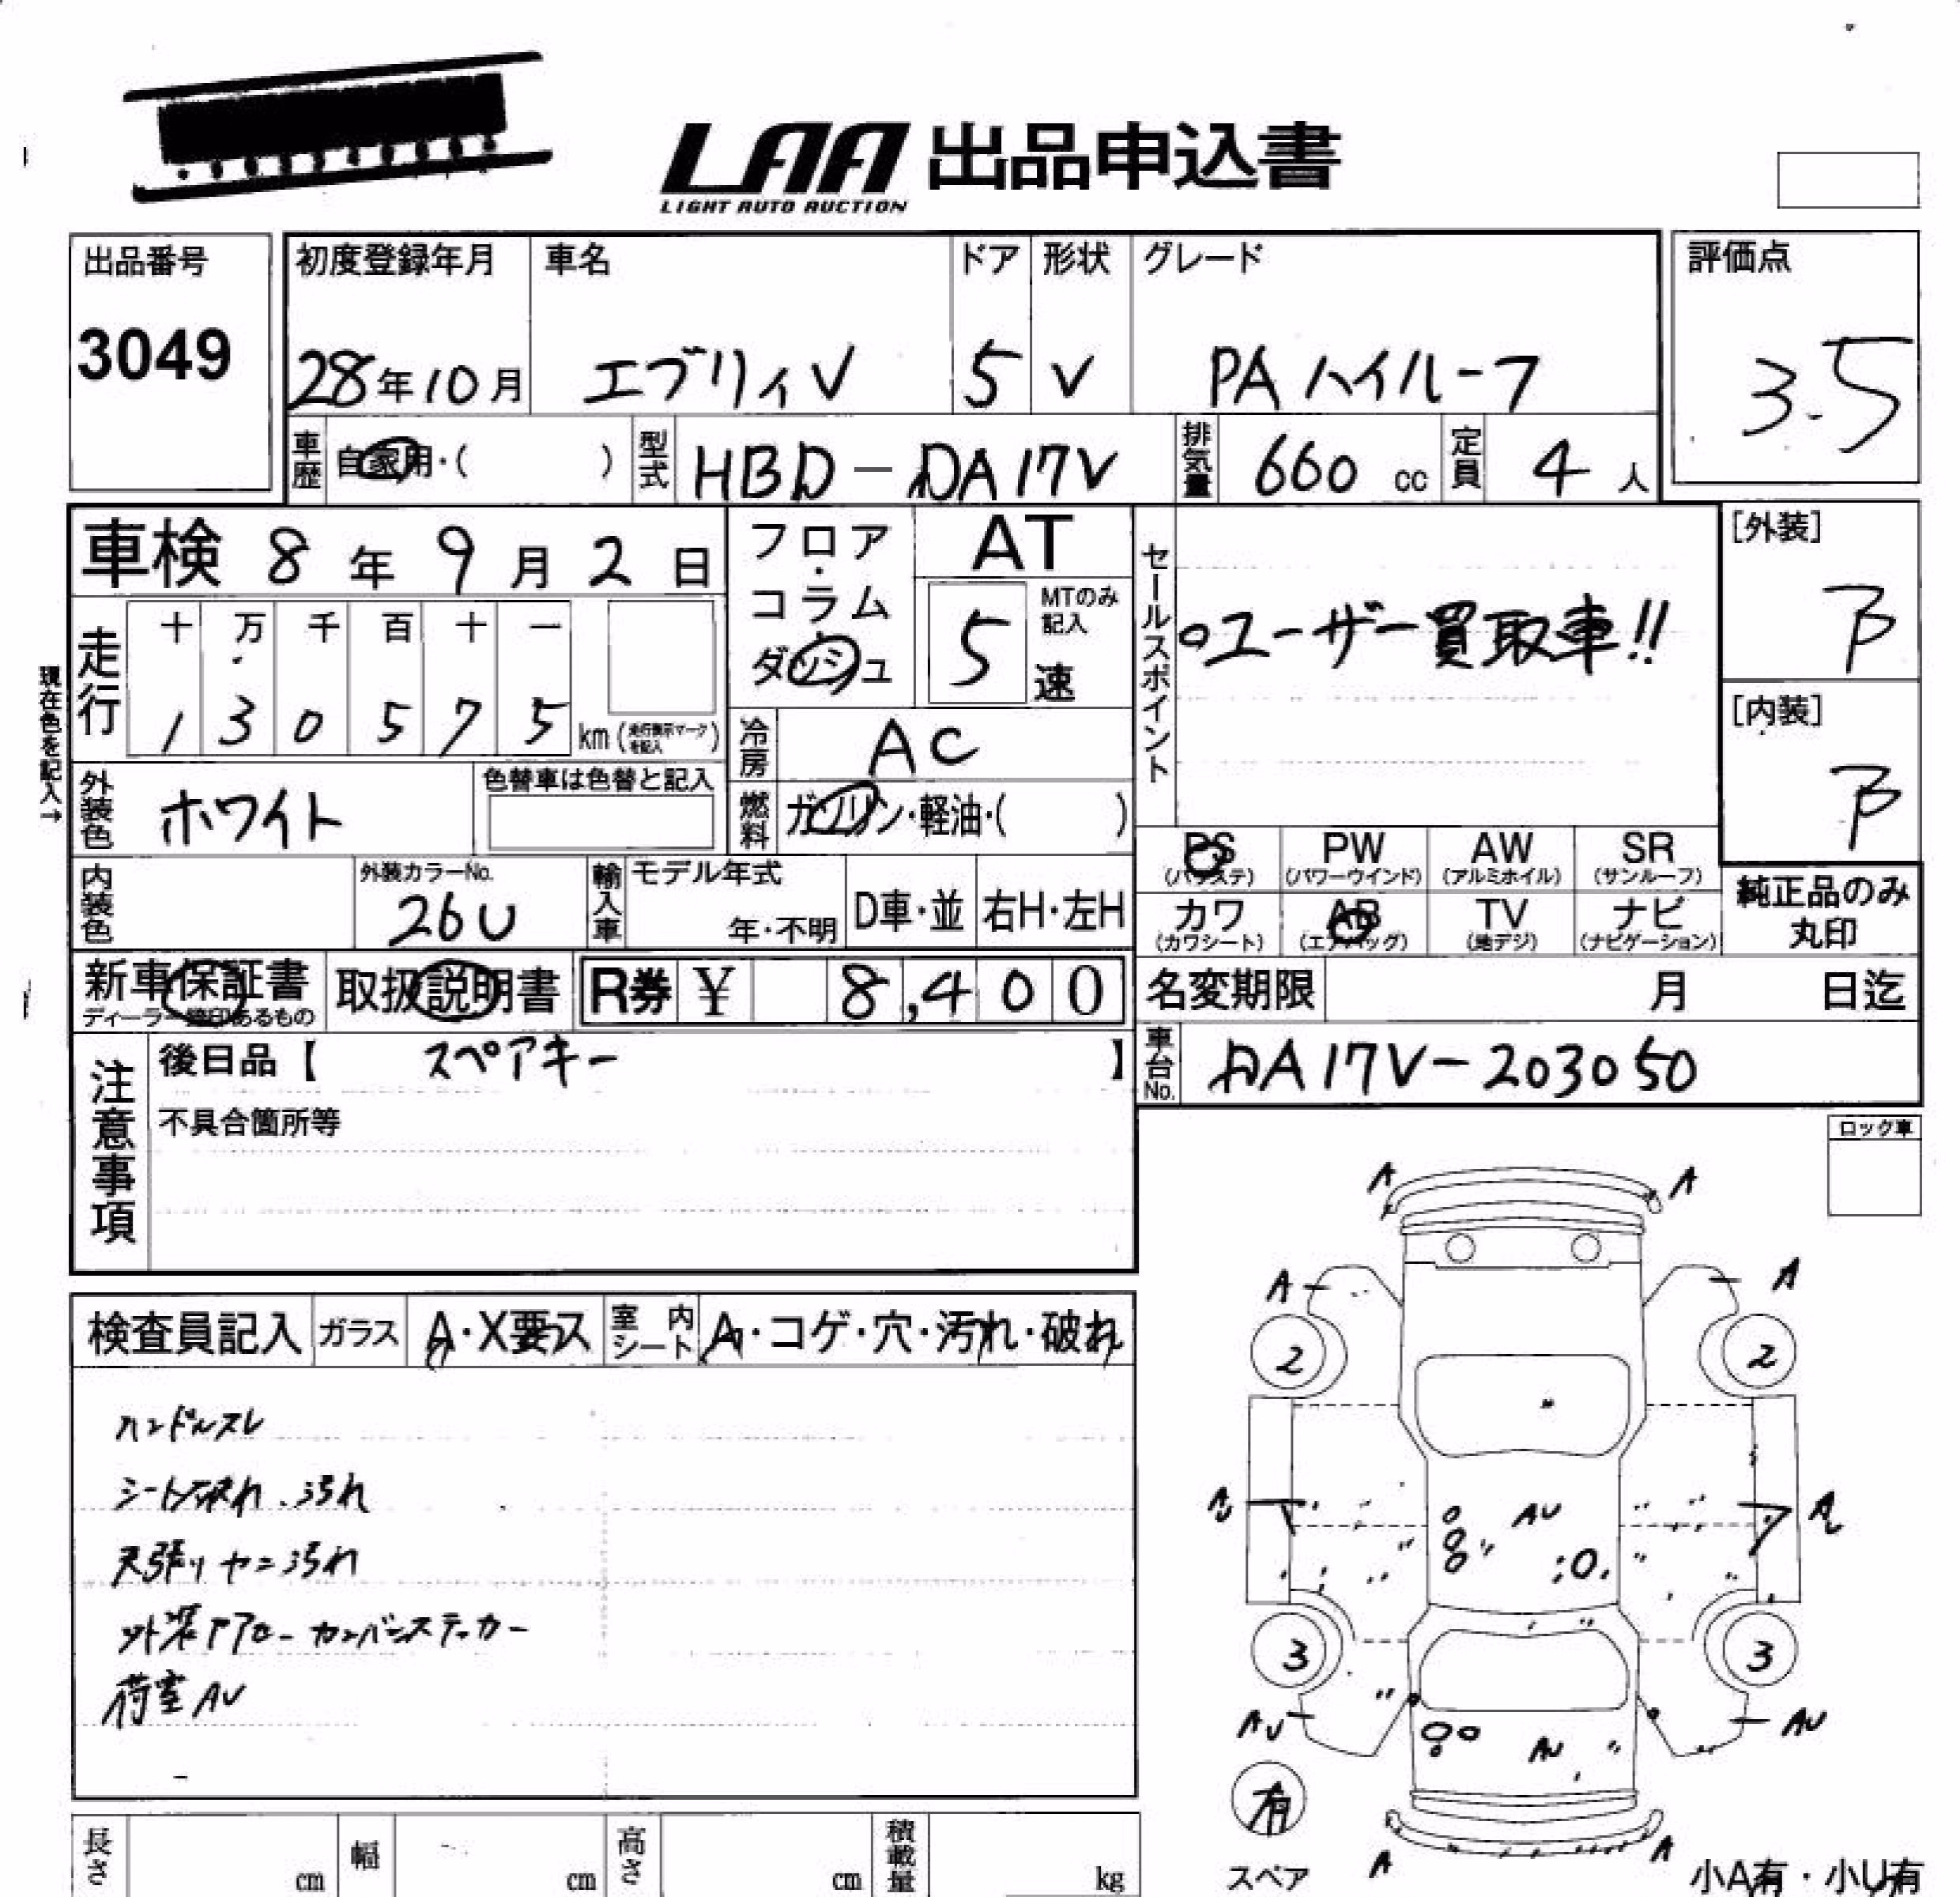 LAA 出品申込書
LIGHT AUTO AUCTION
出品番号 初度登録年月 車名 ドア 形状 グレード 評価点
3049 28年10月 エブリィV 5 V PAハイルーフ 3.5
車歴 自家用・( ) 型式 HBD-DA17V 排気量 660 cc 定員 4 人
車検 8年9月2日 フロア・コラム・ダッシュ AT 5速 MTのみ記入
セールスポイント ○ユーザー買取車!!
[外装] B
[内装] B
現在色を記入→
走行 十 万 千 百 十 一
1 3 0 5 7 5 km(走行表示マークを記入)
冷房 AC
外装色 ホワイト 色替車は色替と記入
燃料 ガソリン・軽油・( )
内装色 外装カラーNo. 26U 輸入車 モデル年式 年・不明 D車・並 右H・左H
PS(パワステ) PW(パワーウインド) AW(アルミホイル) SR(サンルーフ)
カワ(カワシート) AB(エアバッグ) TV(地デジ) ナビ(ナビゲーション)
純正品のみ丸印
新車保証書 取扱説明書 R券 ¥ 8,400 名変期限 月 日迄
車台No. DA17V-203050
注意事項 後日品【 スペアキー 】
不具合箇所等
ロック車
検査員記入 ガラス A・X要ス 室内シート A・コゲ・穴・汚れ・破れ
ハンドルスレ
シート破れ、汚れ
天張りヤニ汚れ
荷室AU
A A
A A
2 2
AU
3 3
AU AU
AU
有
スペア
A A
小A有・小U有
長さ cm 幅 cm 高さ cm 積載量 kg